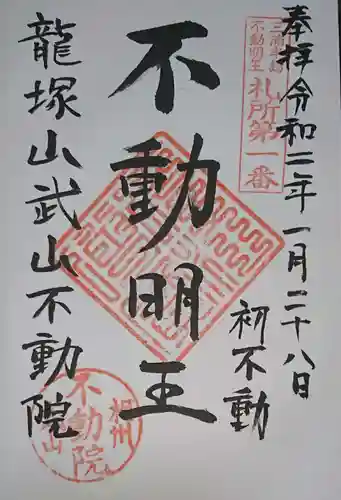 奉拝令和二年一月二十八日
三浦半島
不動明王
札所第一番
初不動
不動明王
龍塚山武山不動院
相州
不動院